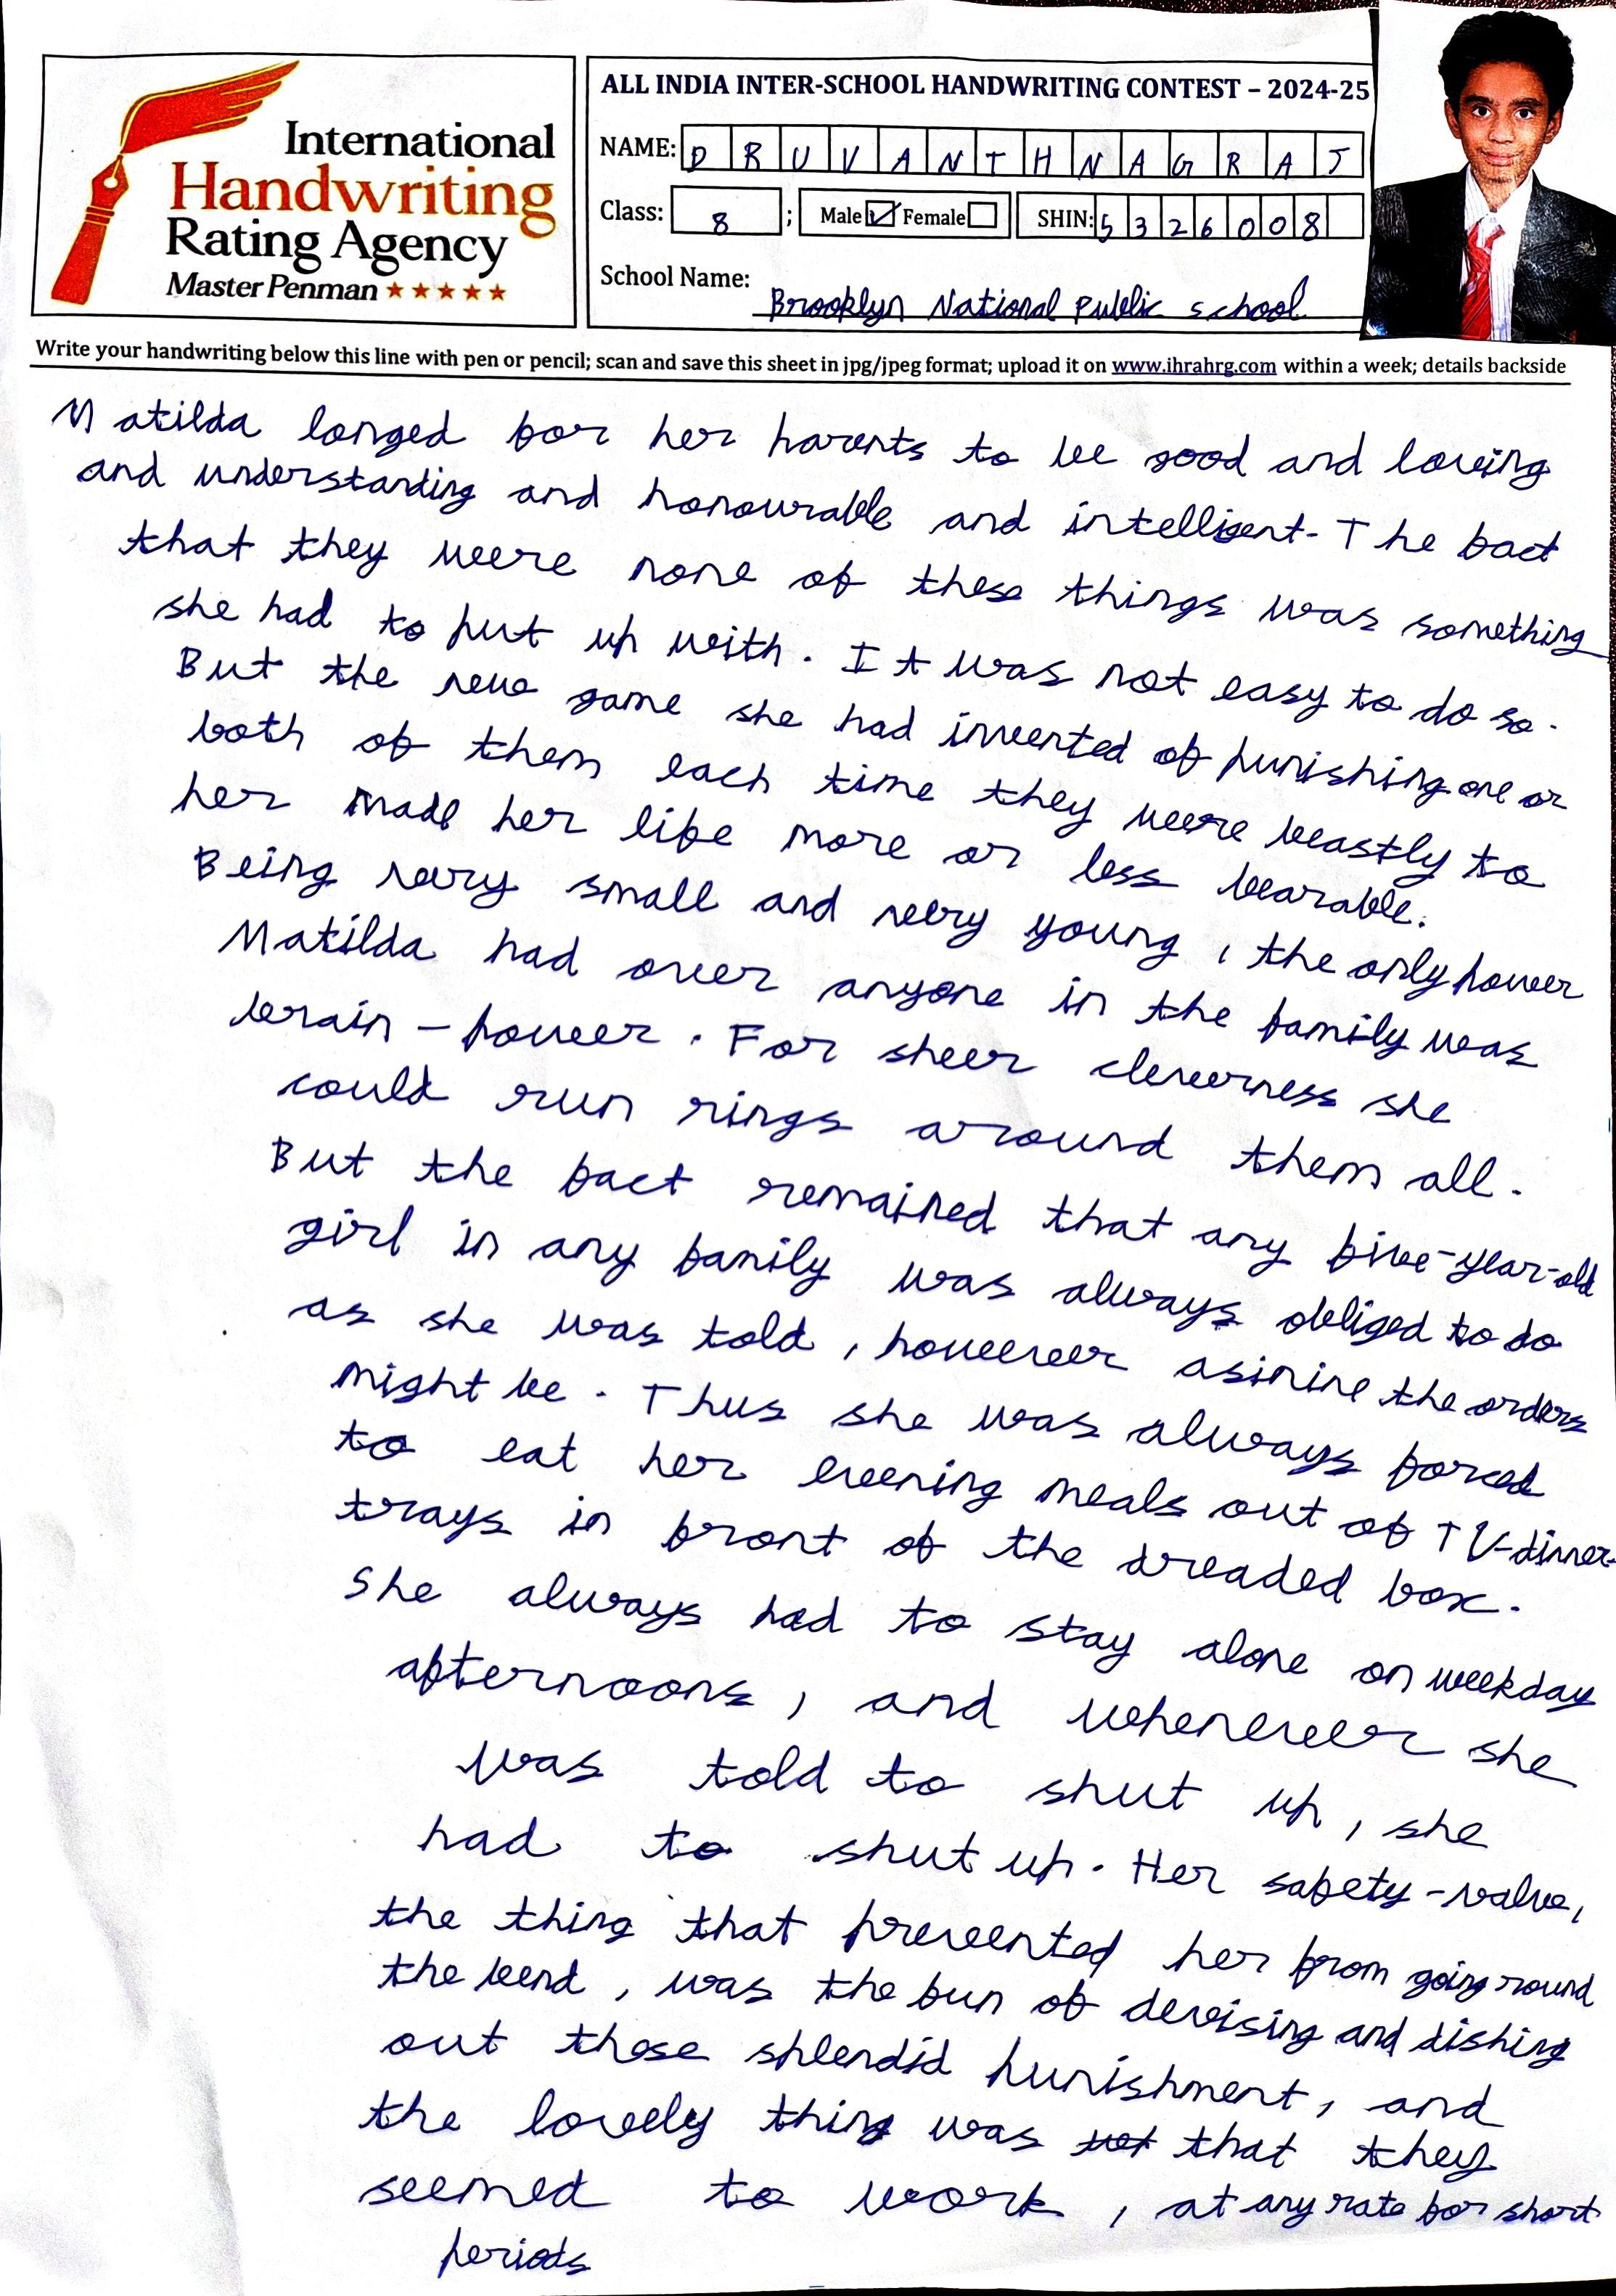 International
Handwriting
Rating Agency
Master Penman ★★★★★
ALL INDIA INTER-SCHOOL HANDWRITING CONTEST – 2024-25
NAME: DRUVANTHNAGRAJ
Class: 8 ; Male ☑ Female ☐ SHIN: 5326008
School Name: Brooklyn National Public school
Write your handwriting below this line with pen or pencil; scan and save this sheet in jpg/jpeg format; upload it on www.ihrahrg.com within a week; details backside
Matilda longed for her parents to be good and loving
and understanding and honourable and intelligent. The fact
that they were none of these things was something
she had to put up with. It was not easy to do so.
But the new game she had invented of punishing one or
both of them each time they were beastly to
her made her life more or less bearable.
Being very small and very young, the only power
Matilda had over anyone in the family was
brain-power. For sheer cleverness she
could run rings around them all.
But the fact remained that any five-year-old
girl in any family was always obliged to do
as she was told, however asinine the orders
might be. Thus she was always forced
to eat her evening meals out of TV-dinner-
trays in front of the dreaded box.
She always had to stay alone on weekday
afternoons, and whenever she
was told to shut up, she
had to shut up. Her safety-valve,
the thing that prevented her from going round
the bend, was the fun of devising and dishing
out these splendid punishment, and
the lovely thing was that they
seemed to work, at any rate for short
periods